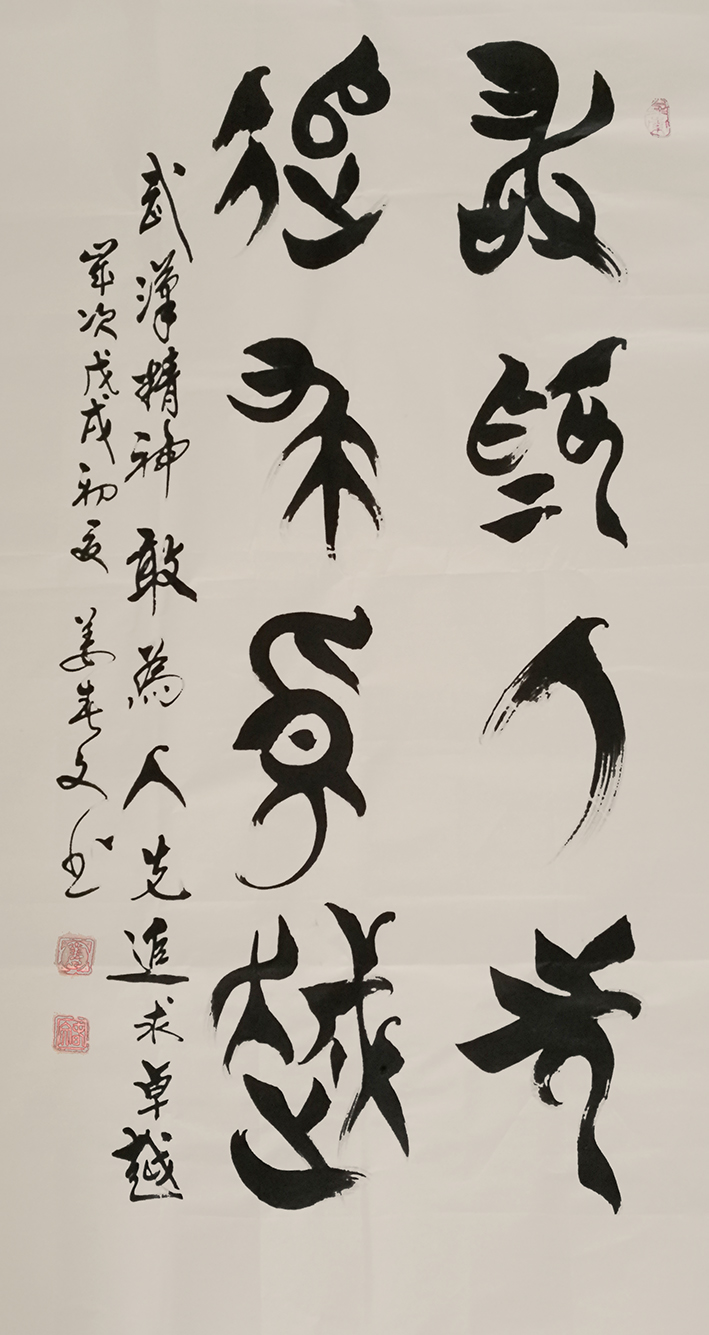 敢為人先
追求卓越
武漢精神敢為人先追求卓越
歲次戊戌初夏姜春文书